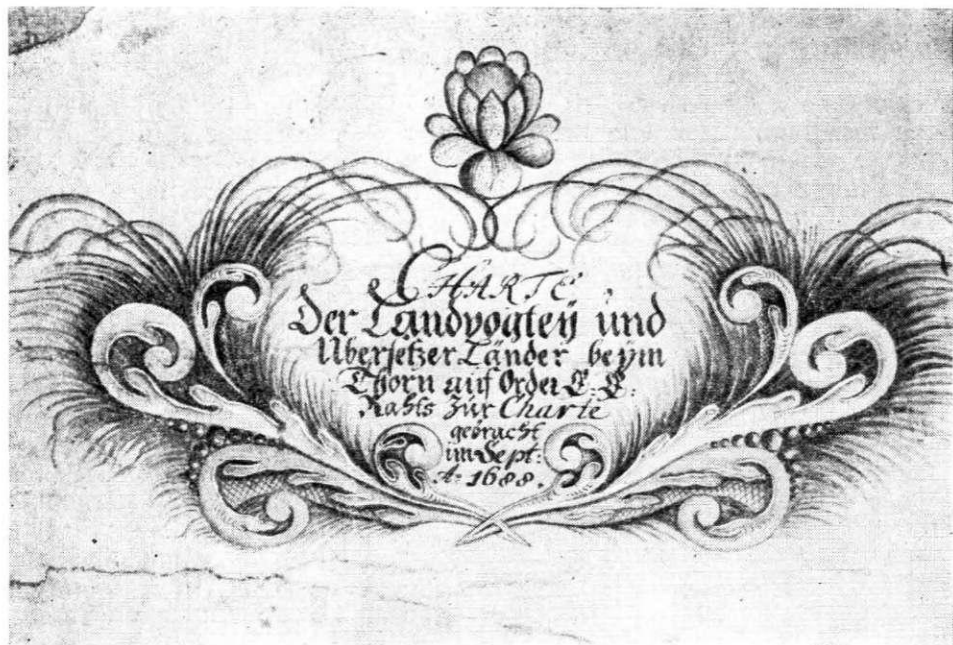 CHARTE
Der Landvogtey und
Ubersetzer Länder beym
Thorn auf Order E. E.
Rahts zur Charte
gebracht
im Sept:
A: 1688.